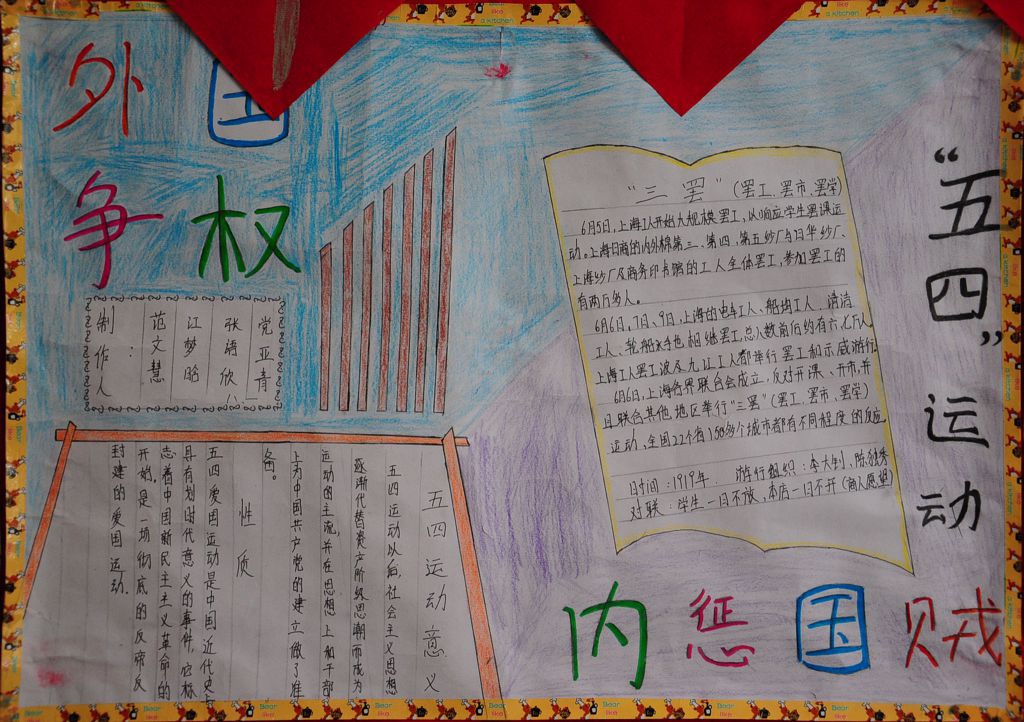 外国
争权
制作人：
范文慧
江梦昭
张语欣
党亚青
五四运动意义
五四运动以后，社会主义思想
逐渐代替资产阶级思潮而成为
运动的主流，并在思想上和干部
上为中国共产党的建立做了准
备。
性质
五四爱国运动是中国近代史上
具有划时代意义的事件，它标
志着中国新民主主义革命的
开始，是一场彻底的反帝反
封建的爱国运动.
"三罢"（罢工、罢市、罢学）
6月5日，上海工人开始大规模罢工，以响应学生罢课运
动。上海日商的内外棉第三、第四、第五纱厂与日华纱厂、
上海纱厂及商务印书馆的工人全体罢工，参加罢工的
有两万多人。
6月6日、7日、9日，上海的电车工人、船坞工人、清洁
工人、轮船水手也相继罢工，总人数前后约有六、七万人.
上海工人罢工波及九江工人都举行罢工和示威游行.
6月6日，上海各界联合会成立，反对开课、开市，并
且联合其他地区举行"三罢"（罢工、罢市、罢学）
运动，全国22个省150多个城市都有不同程度的反应
时间：1919年. 游行组织：李大钊，陈独秀
对联：学生一日不放，本店一日不开（商人愿望）
"五四"运动
内惩国贼
Bear
like
a kitchen